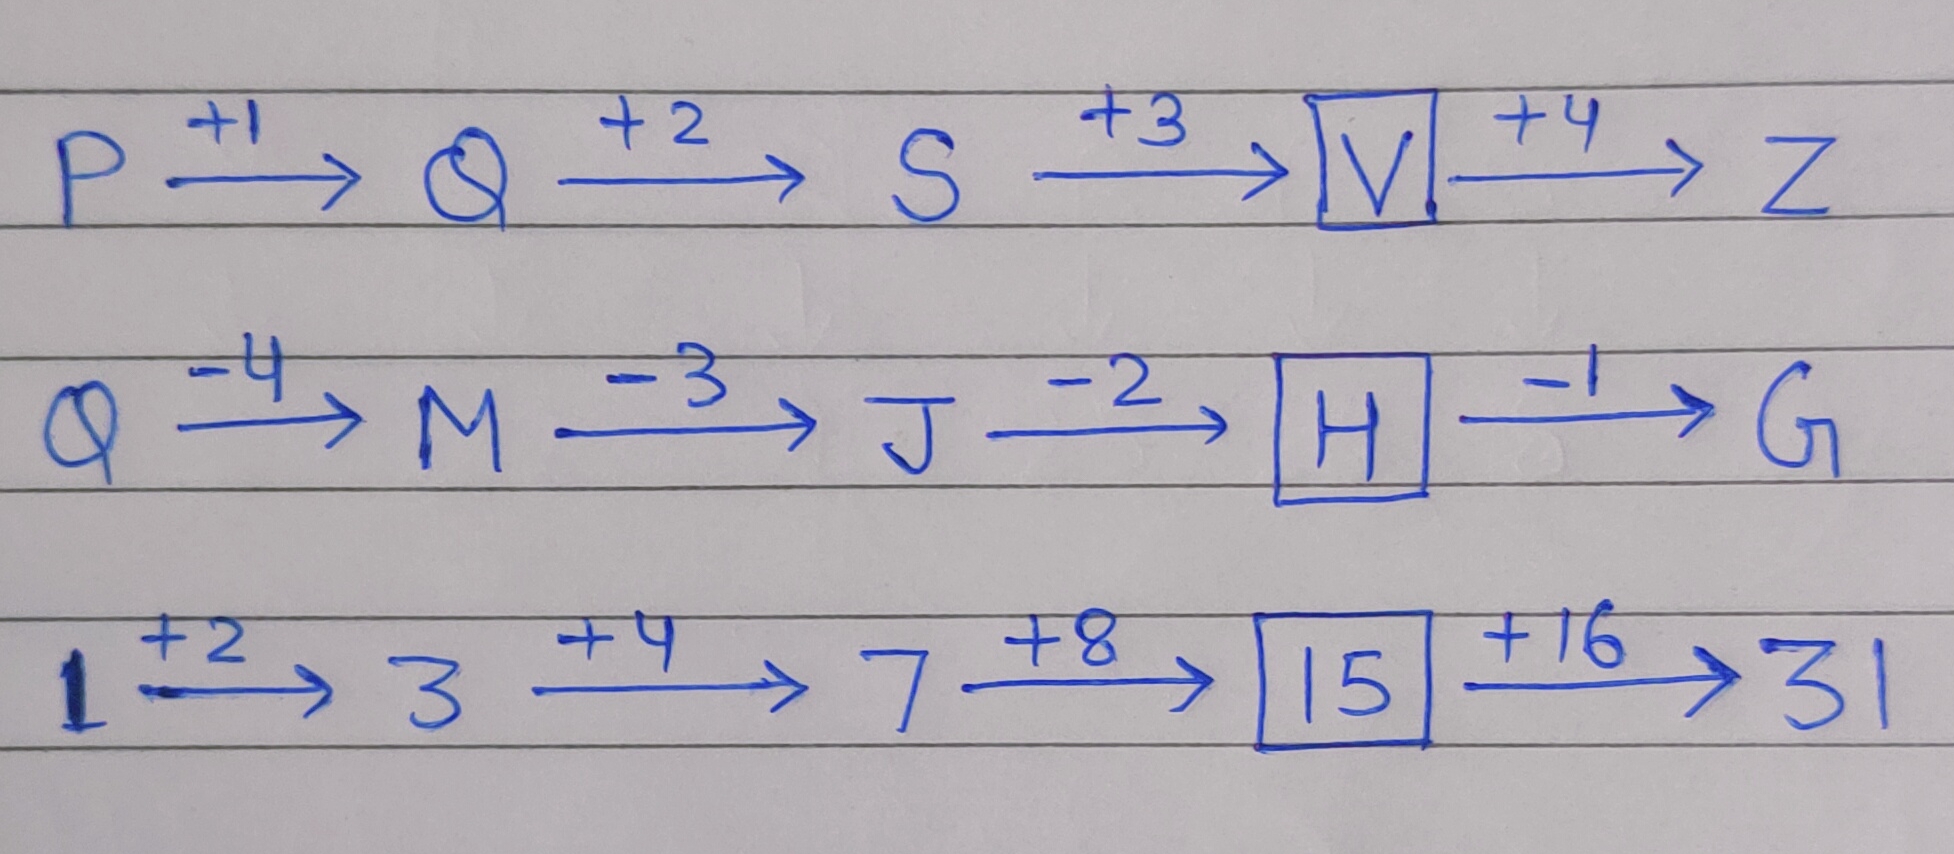 P +1→ Q +2→ S +3→ V +4→ Z
Q -4→ M -3→ J -2→ H -1→ G
1 +2→ 3 +4→ 7 +8→ 15 +16→ 31